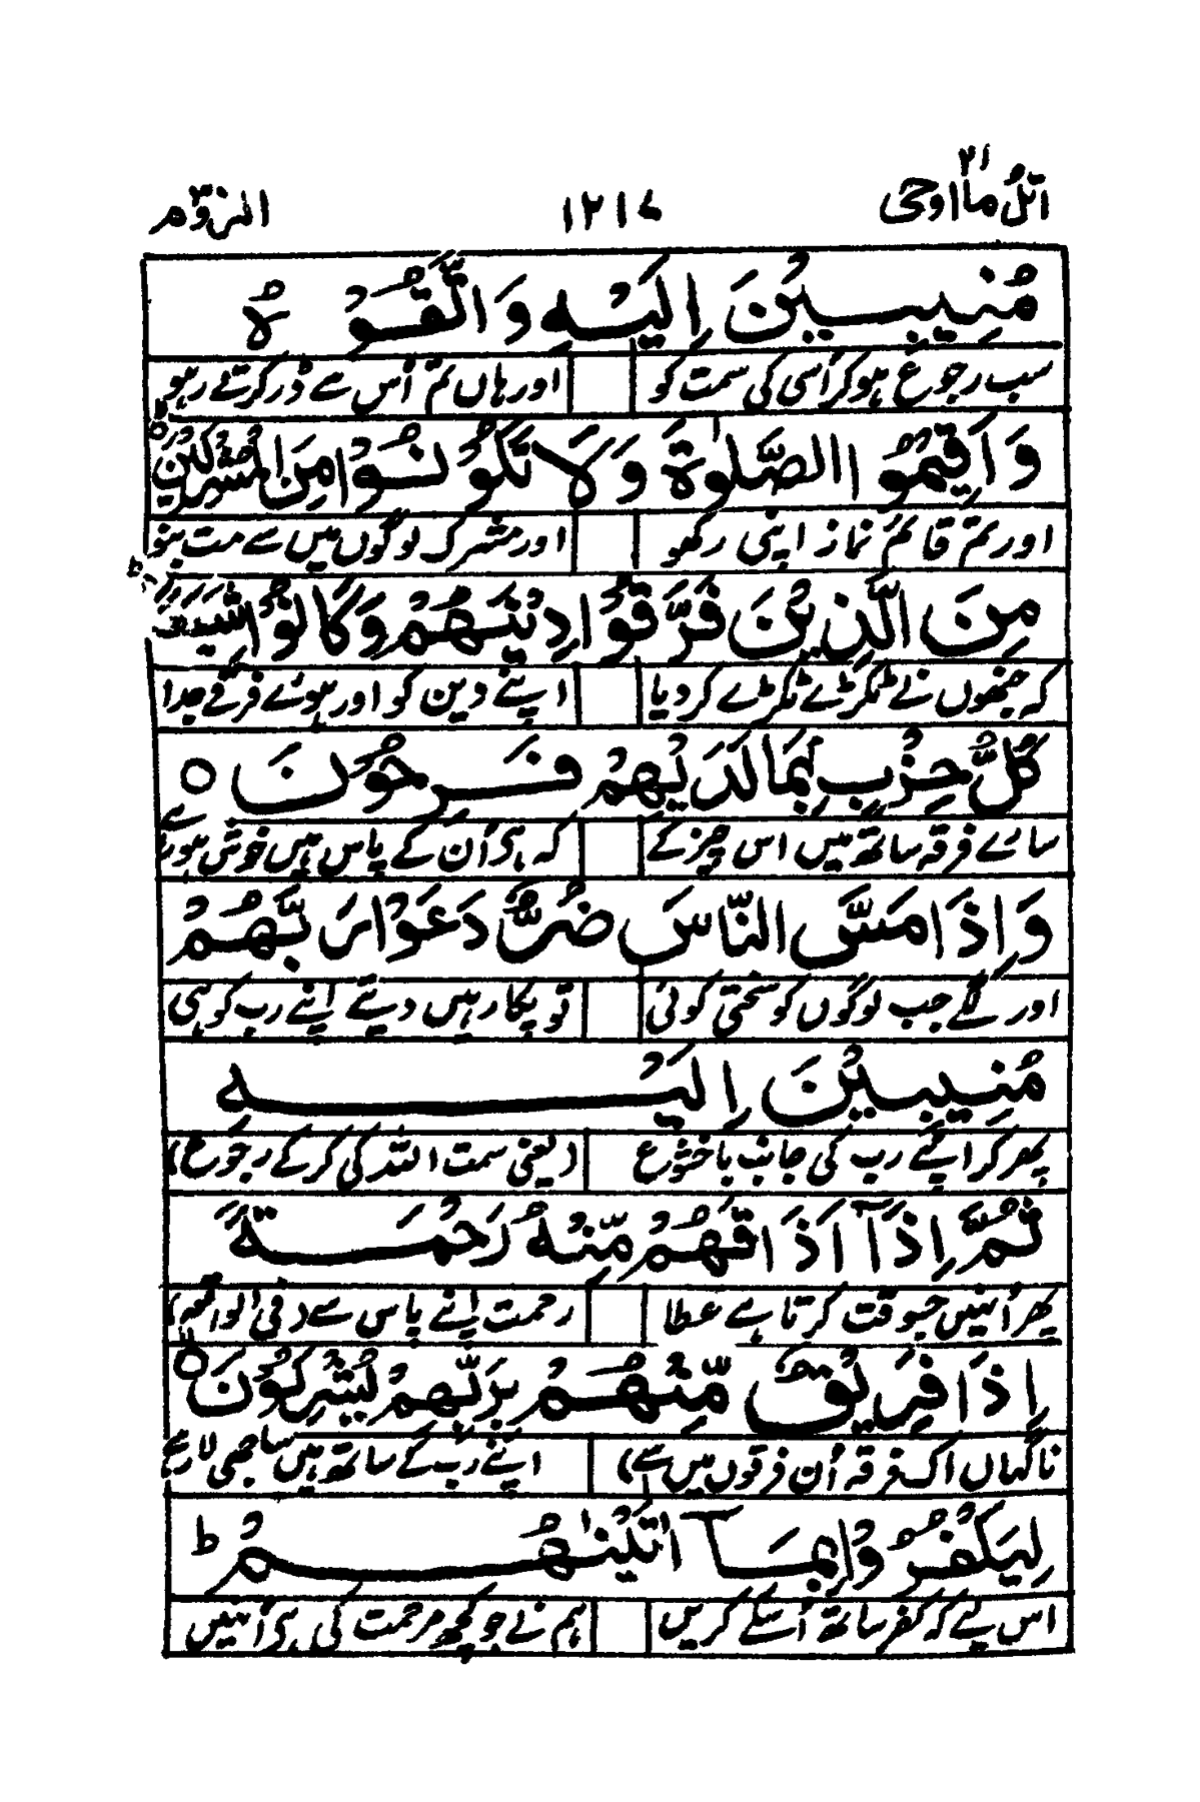 اتل ما اوحی ۲۱
۱۲۱۷
الروم ۳۰
مُنِيبِينَ إِلَيْهِ وَاتَّقُوهُ
سب رجوع ہو کر اُسی کی سمت کو اور ہاں تم اُس سے ڈر کرتے رہو
وَأَقِيمُوا الصَّلٰوةَ وَلَا تَكُونُوا مِنَ الْمُشْرِكِينَ
اور تم قائم نماز اپنی رکھو اور مشرک لوگوں میں سے مت بنو
مِنَ الَّذِينَ فَرَّقُوا دِينَهُمْ وَكَانُوا شِيَعًا
کہ جنھوں نے ٹکڑے ٹکڑے کر دیا اپنے دین کو اور ہوئے فرقے جدا
كُلُّ حِزْبٍ بِمَا لَدَيْهِمْ فَرِحُونَ ○
سارے فرقہ ساتھ میں اس چیز کے کہ ہی اُن کے پاس ہیں خوش ہو رہے
وَإِذَا مَسَّ النَّاسَ ضُرٌّ دَعَوْا رَبَّهُمْ
اور لگے جب لوگوں کو سختی کوئی تو پکار ہیں دیتے اپنے رب کو ہی
مُنِيبِينَ إِلَيْهِ
پھر کر اپنے رب کی جانب باخشوع (یعنی سمت اللہ کی کر کے رجوع)
ثُمَّ إِذَآ أَذَاقَهُمْ مِنْهُ رَحْمَةً
پھر اُنہیں جس وقت کرتا ہے عطا رحمت اپنے پاس سے (فی الواقعہ)
إِذَا فَرِيقٌ مِّنْهُمْ بِرَبِّهِمْ يُشْرِكُونَ ○
ناگہاں اک فرقہ اُن فرقوں میں سے) اپنے رب کے ساتھ ہیں ساجھی لا رہے
لِيَكْفُرُوا بِمَآ اٰتَيْنٰهُمْ ط
اس لیے کہ کفر ساتھ اُسکے کریں ہم نے جو کچھ مرحمت کی ہی اُنہیں